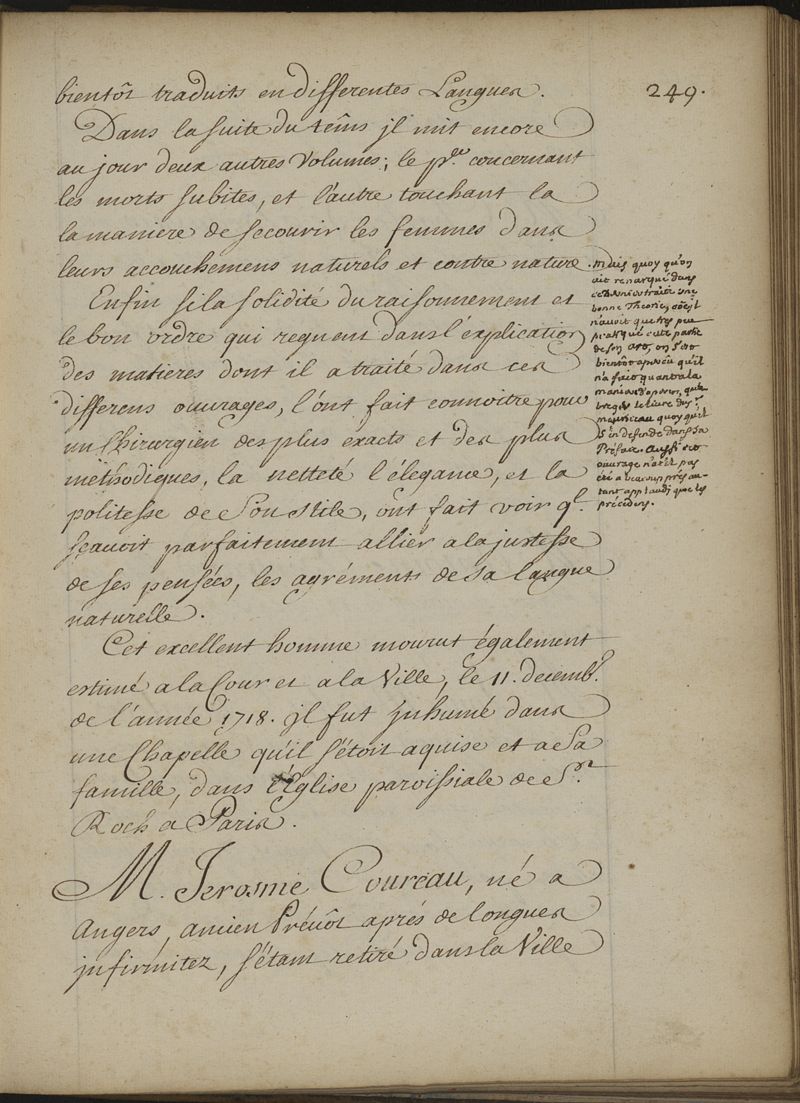 249.
bientôt traduits en differentes Langues.
Dans la suite du têms jl mit encore
au jour deux autres Volumes; le p.er concernant
les morts subites, et l'autre touchant la
la maniere de secourir les femmes dans
leurs accouchemens naturels et contre nature
Enfin si la solidité du raisonnement et
le bon ordre qui regnent dans l'explication
des matieres dont il a traité dans ces
differens ouvrages, l'ont fait connoitre pour
un Chirurgien des plus exacts et des plus
méthodiques, la netteté l'élegance, et la
politesse de son stile, ont fait voir ql.
sçavoit parfaitement allier a la justesse
de ses pensées, les agréments de sa langue
naturelle.
Cet excellent homme mourut également
estimé a la Cour et a la Ville, le 11. decemb.
de l'année 1718. jl fut jnhumé dans
une Chapelle qu'il s'étoit aquise et a sa
famille, dans l'Eglise paroissiale de St.
Roch a Paris.
M. Jerosme Coureau, né a
Angers, ancien Prévôt aprés de longues
jnfirmitez, s'étant retiré dans la Ville
. mais quoy qu'on
ait remarqué dans
ce dernier traité une
bonne Theorie, co͞e jl
n'avoit que tres peu
pratiqué cette partie
de son art, on s'est
bientôt apercû qu'il
n'a fait quant a la
maniere d'operer, qu'a-
breger le livre de Sr.
Mauriceau quoy qu'il
s'en defende dans sa
Préface. aussi cet
ouvrage n'a t'il pas
été a beaucoup prés au-
tant applaudi que les
précédens.